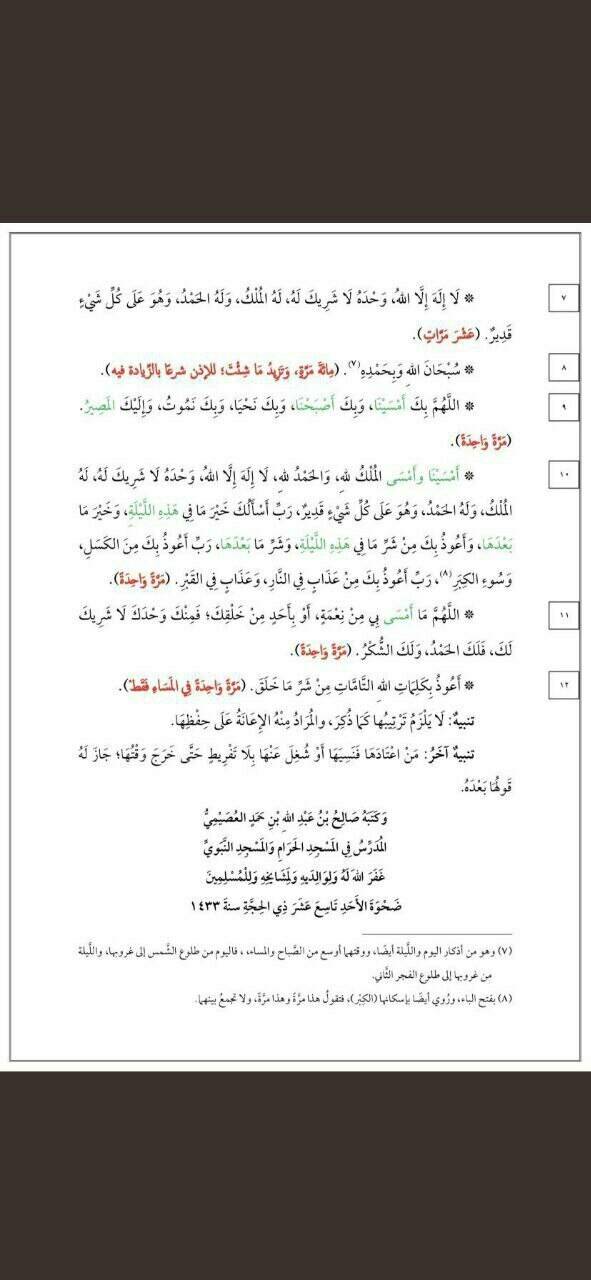 ٧ ❊ لَا إِلَهَ إِلَّا اللهُ، وَحْدَهُ لَا شَرِيكَ لَهُ، لَهُ المُلْكُ، وَلَهُ الحَمْدُ، وَهُوَ عَلَى كُلِّ شَيْءٍ
قَدِيرٌ. (عَشْرَ مَرَّاتٍ).
٨ ❊ سُبْحَانَ اللهِ وَبِحَمْدِهِ(٧). (مِائَةَ مَرَّةٍ، وَتَزِيدُ مَا شِئْتَ؛ للإذن شرعًا بالزِّيادة فيه).
٩ ❊ اللَّهُمَّ بِكَ أَمْسَيْنَا، وَبِكَ أَصْبَحْنَا، وَبِكَ نَحْيَا، وَبِكَ نَمُوتُ، وَإِلَيْكَ المَصِيرُ.
(مَرَّةً وَاحِدَةً).
١٠ ❊ أَمْسَيْنَا وأَمْسَى المُلْكُ للهِ، وَالحَمْدُ للهِ، لَا إِلَهَ إِلَّا اللهُ، وَحْدَهُ لَا شَرِيكَ لَهُ، لَهُ
المُلْكُ، وَلَهُ الحَمْدُ، وَهُوَ عَلَى كُلِّ شَيْءٍ قَدِيرٌ، رَبِّ أَسْأَلُكَ خَيْرَ مَا فِي هَذِهِ اللَّيْلَةِ، وَخَيْرَ مَا
بَعْدَهَا، وَأَعُوذُ بِكَ مِنْ شَرِّ مَا فِي هَذِهِ اللَّيْلَةِ، وَشَرِّ مَا بَعْدَهَا، رَبِّ أَعُوذُ بِكَ مِنَ الكَسَلِ،
وَسُوءِ الكِبَرِ(٨)، رَبِّ أَعُوذُ بِكَ مِنْ عَذَابٍ فِي النَّارِ، وَعَذَابٍ فِي القَبْرِ. (مَرَّةً وَاحِدَةً).
١١ ❊ اللَّهُمَّ مَا أَمْسَى بِي مِنْ نِعْمَةٍ، أَوْ بِأَحَدٍ مِنْ خَلْقِكَ؛ فَمِنْكَ وَحْدَكَ لَا شَرِيكَ
لَكَ، فَلَكَ الحَمْدُ، وَلَكَ الشُّكْرُ. (مَرَّةً وَاحِدَةً).
١٢ ❊ أَعُوذُ بِكَلِمَاتِ اللهِ التَّامَّاتِ مِنْ شَرِّ مَا خَلَقَ. (مَرَّةً وَاحِدَةً فِي المَسَاءِ فَقَطْ).
تنبيهٌ: لَا يَلْزَمُ تَرْتِيبُها كَمَا ذُكِرَ، والمُرَادُ مِنْهُ الإِعَانَةُ عَلَى حِفْظِهَا.
تنبيهٌ آخَرُ: مَنِ اعْتَادَهَا فَنَسِيَهَا أَوْ شُغِلَ عَنْهَا بِلَا تَفْرِيطٍ حَتَّى خَرَجَ وَقْتُهَا؛ جَازَ لَهُ
قَولُهَا بَعْدَهُ.
وَكَتَبَهُ صَالِحُ بْنُ عَبْدِ اللهِ بْنِ حَمَدٍ العُصَيْمِيُّ
المُدَرِّسُ فِي المَسْجِدِ الحَرَامِ وَالمَسْجِدِ النَّبَوِيِّ
غَفَرَ اللهُ لَهُ وَلِوَالِدِيهِ وَلِمَشَايِخِهِ وَلِلْمُسْلِمِينَ
ضَحْوَةَ الأَحَدِ تَاسِعَ عَشَرَ ذِي الحِجَّةِ سنةَ ١٤٣٣
(٧) وهو من أذكار اليوم واللَّيلة أيضًا، ووقتهما أوسع من الصَّباح والمساء، ، فاليوم من طلوع الشَّمس إلى غروبها، واللَّيلة
مِن غروبها إلى طلوع الفجر الثَّاني.
(٨) بفتح الباء، ورُوي أيضًا بإسكانها (الكِبْر)، فتقولُ هذا مرَّةً وهذا مرَّةً، ولا تجمعُ بينهما.